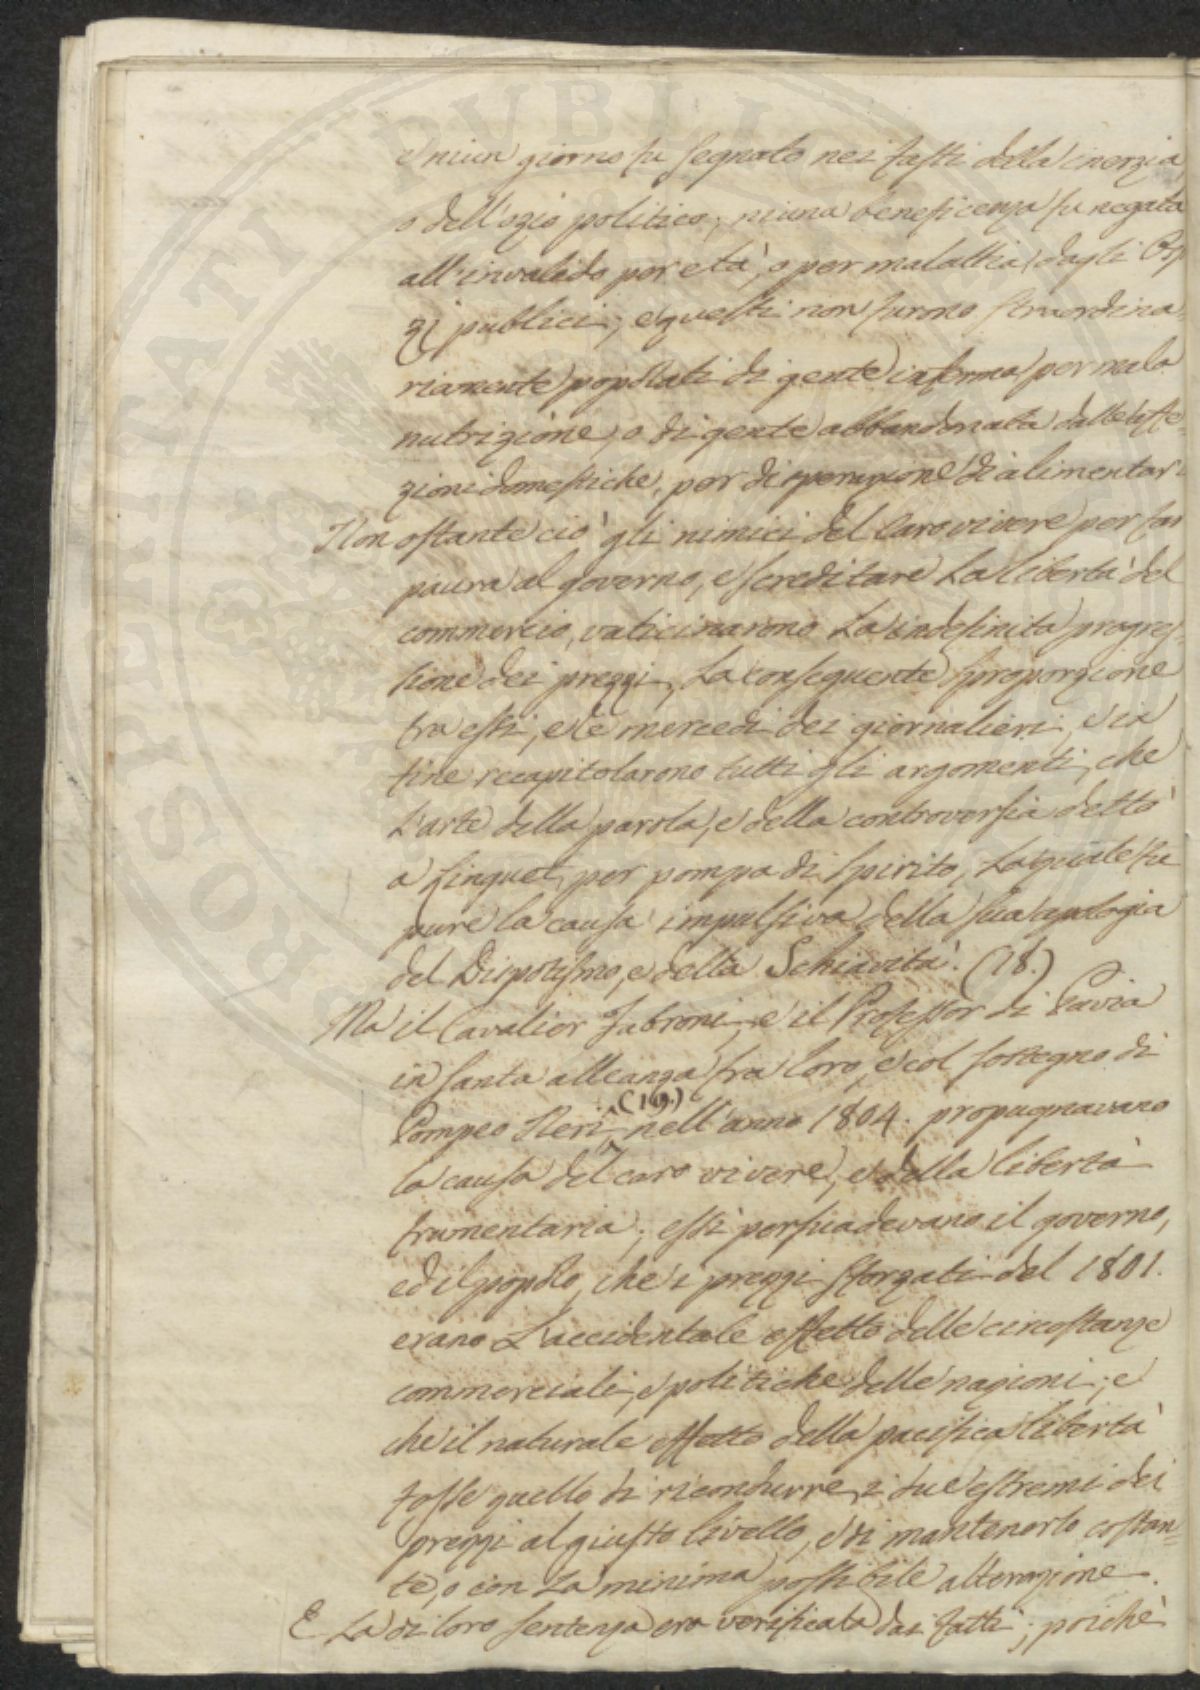 e niun giorno fu segnato nei fasti della inerzia,
o dell'ozio politico; niuna beneficenza fu negata
all'invalido per età, o per malattia dagli Ospi
zj publici; e questi non furono straordina
riamente popolati di gente inferma per mala
nutrizione, o di gente abbandonata dalle affe
zioni domestiche, per disperazione di alimentar
Non ostante ciò gli nimici del Caro vivere per far
paura al governo, e screditare La libertà del
commercio, vaticinarono La indefinita progres
sione dei prezzi, La conseguente sproporzione
tra essi, e le mercedi dei giornalieri, e in
fine recapitolarono tutti gli argomenti, che
L'arte della parola, e della controversia dettò
a Linguet per pompa di spirito, La quale fu
pure la causa impulsiva della sua apologia
del Dispotismo, e della Schiavità. (18.)
Ma il Cavalier Fabroni, e il Professor di Pavia
in santa alleanza fra loro, e col sostegno di
(19.)
Pompeo Neri nell'anno 1804. propugnavano
la causa del caro vivere, e della libertà
frumentaria; essi persuadevano il governo,
ed il popolo, che i prezzi sforzati del 1801.
erano L'accidentale effetto delle circostanze
commerciali, e politiche delle nazioni; e
che il naturale effetto della pacifica libertà
fosse quello di ricondurre i due estremi dei
prezzi al giusto livello, e di mantenerlo costan=
te, o con La minima possibile alterazione.
E La di loro sentenza era verificata dai fatti; poichè
PROSPERITATI PUBLICAE